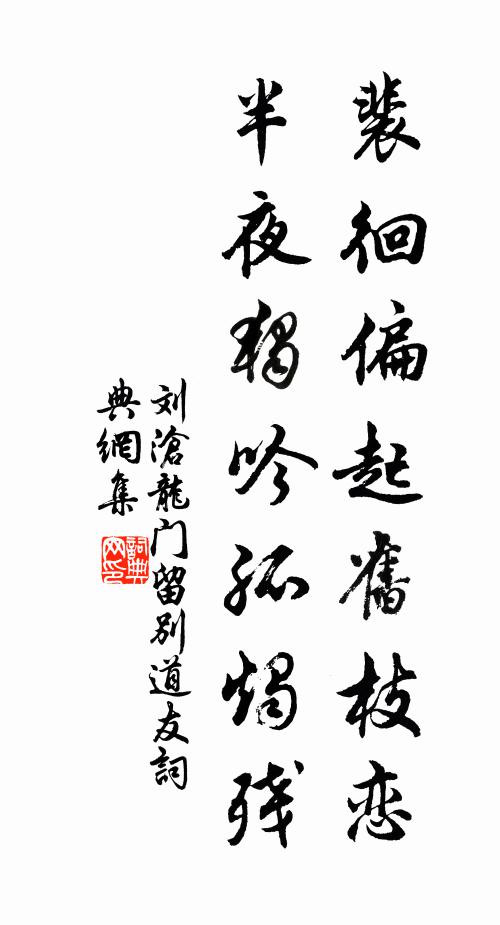 裴徊偏起舊枝恋
半夜獨吟孤燭残
刘滄龍门留别道友詞
典網集
詞典
网印